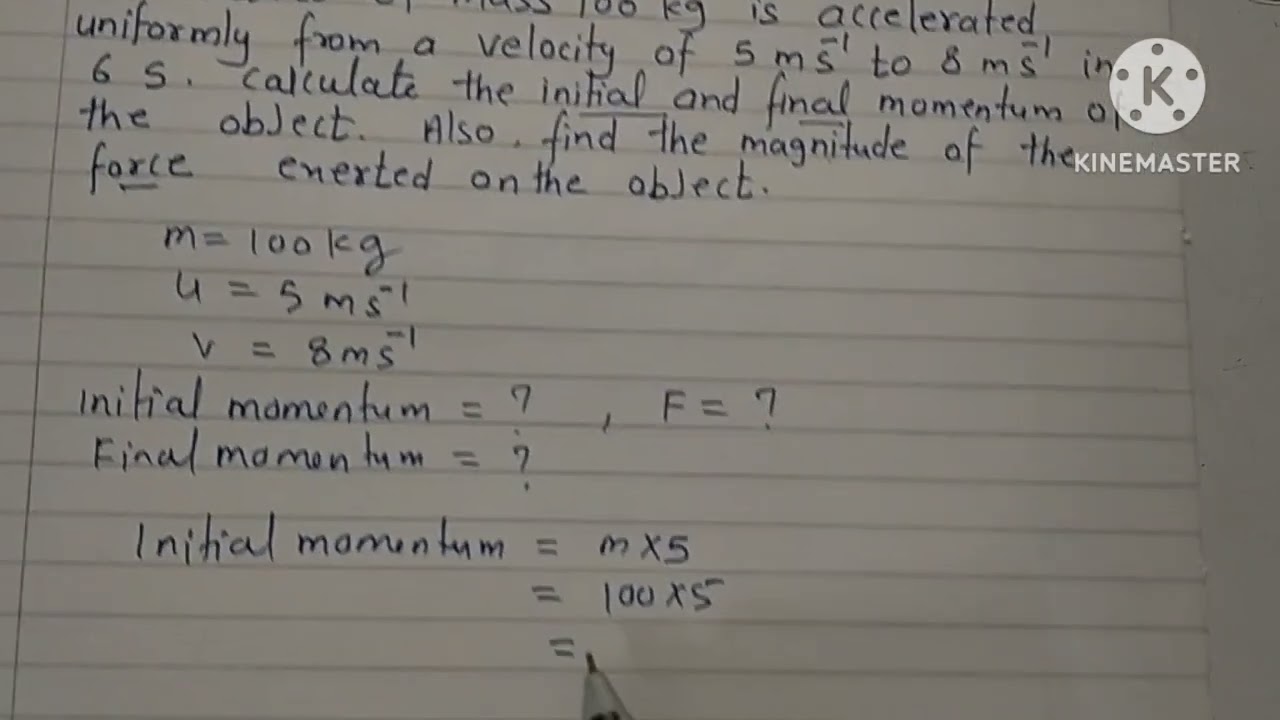 of mass 100 kg is accelerated
uniformly from a velocity of 5 ms⁻¹ to 8 ms⁻¹ in
6 s. calculate the initial and final momentum of
the object. Also, find the magnitude of the
force exerted on the object.
K
KINEMASTER
m = 100 kg
u = 5 ms⁻¹
v = 8 ms⁻¹
Initial momentum = ? , F = ?
Final momentum = ?
Initial momentum = m × 5
= 100 × 5
=